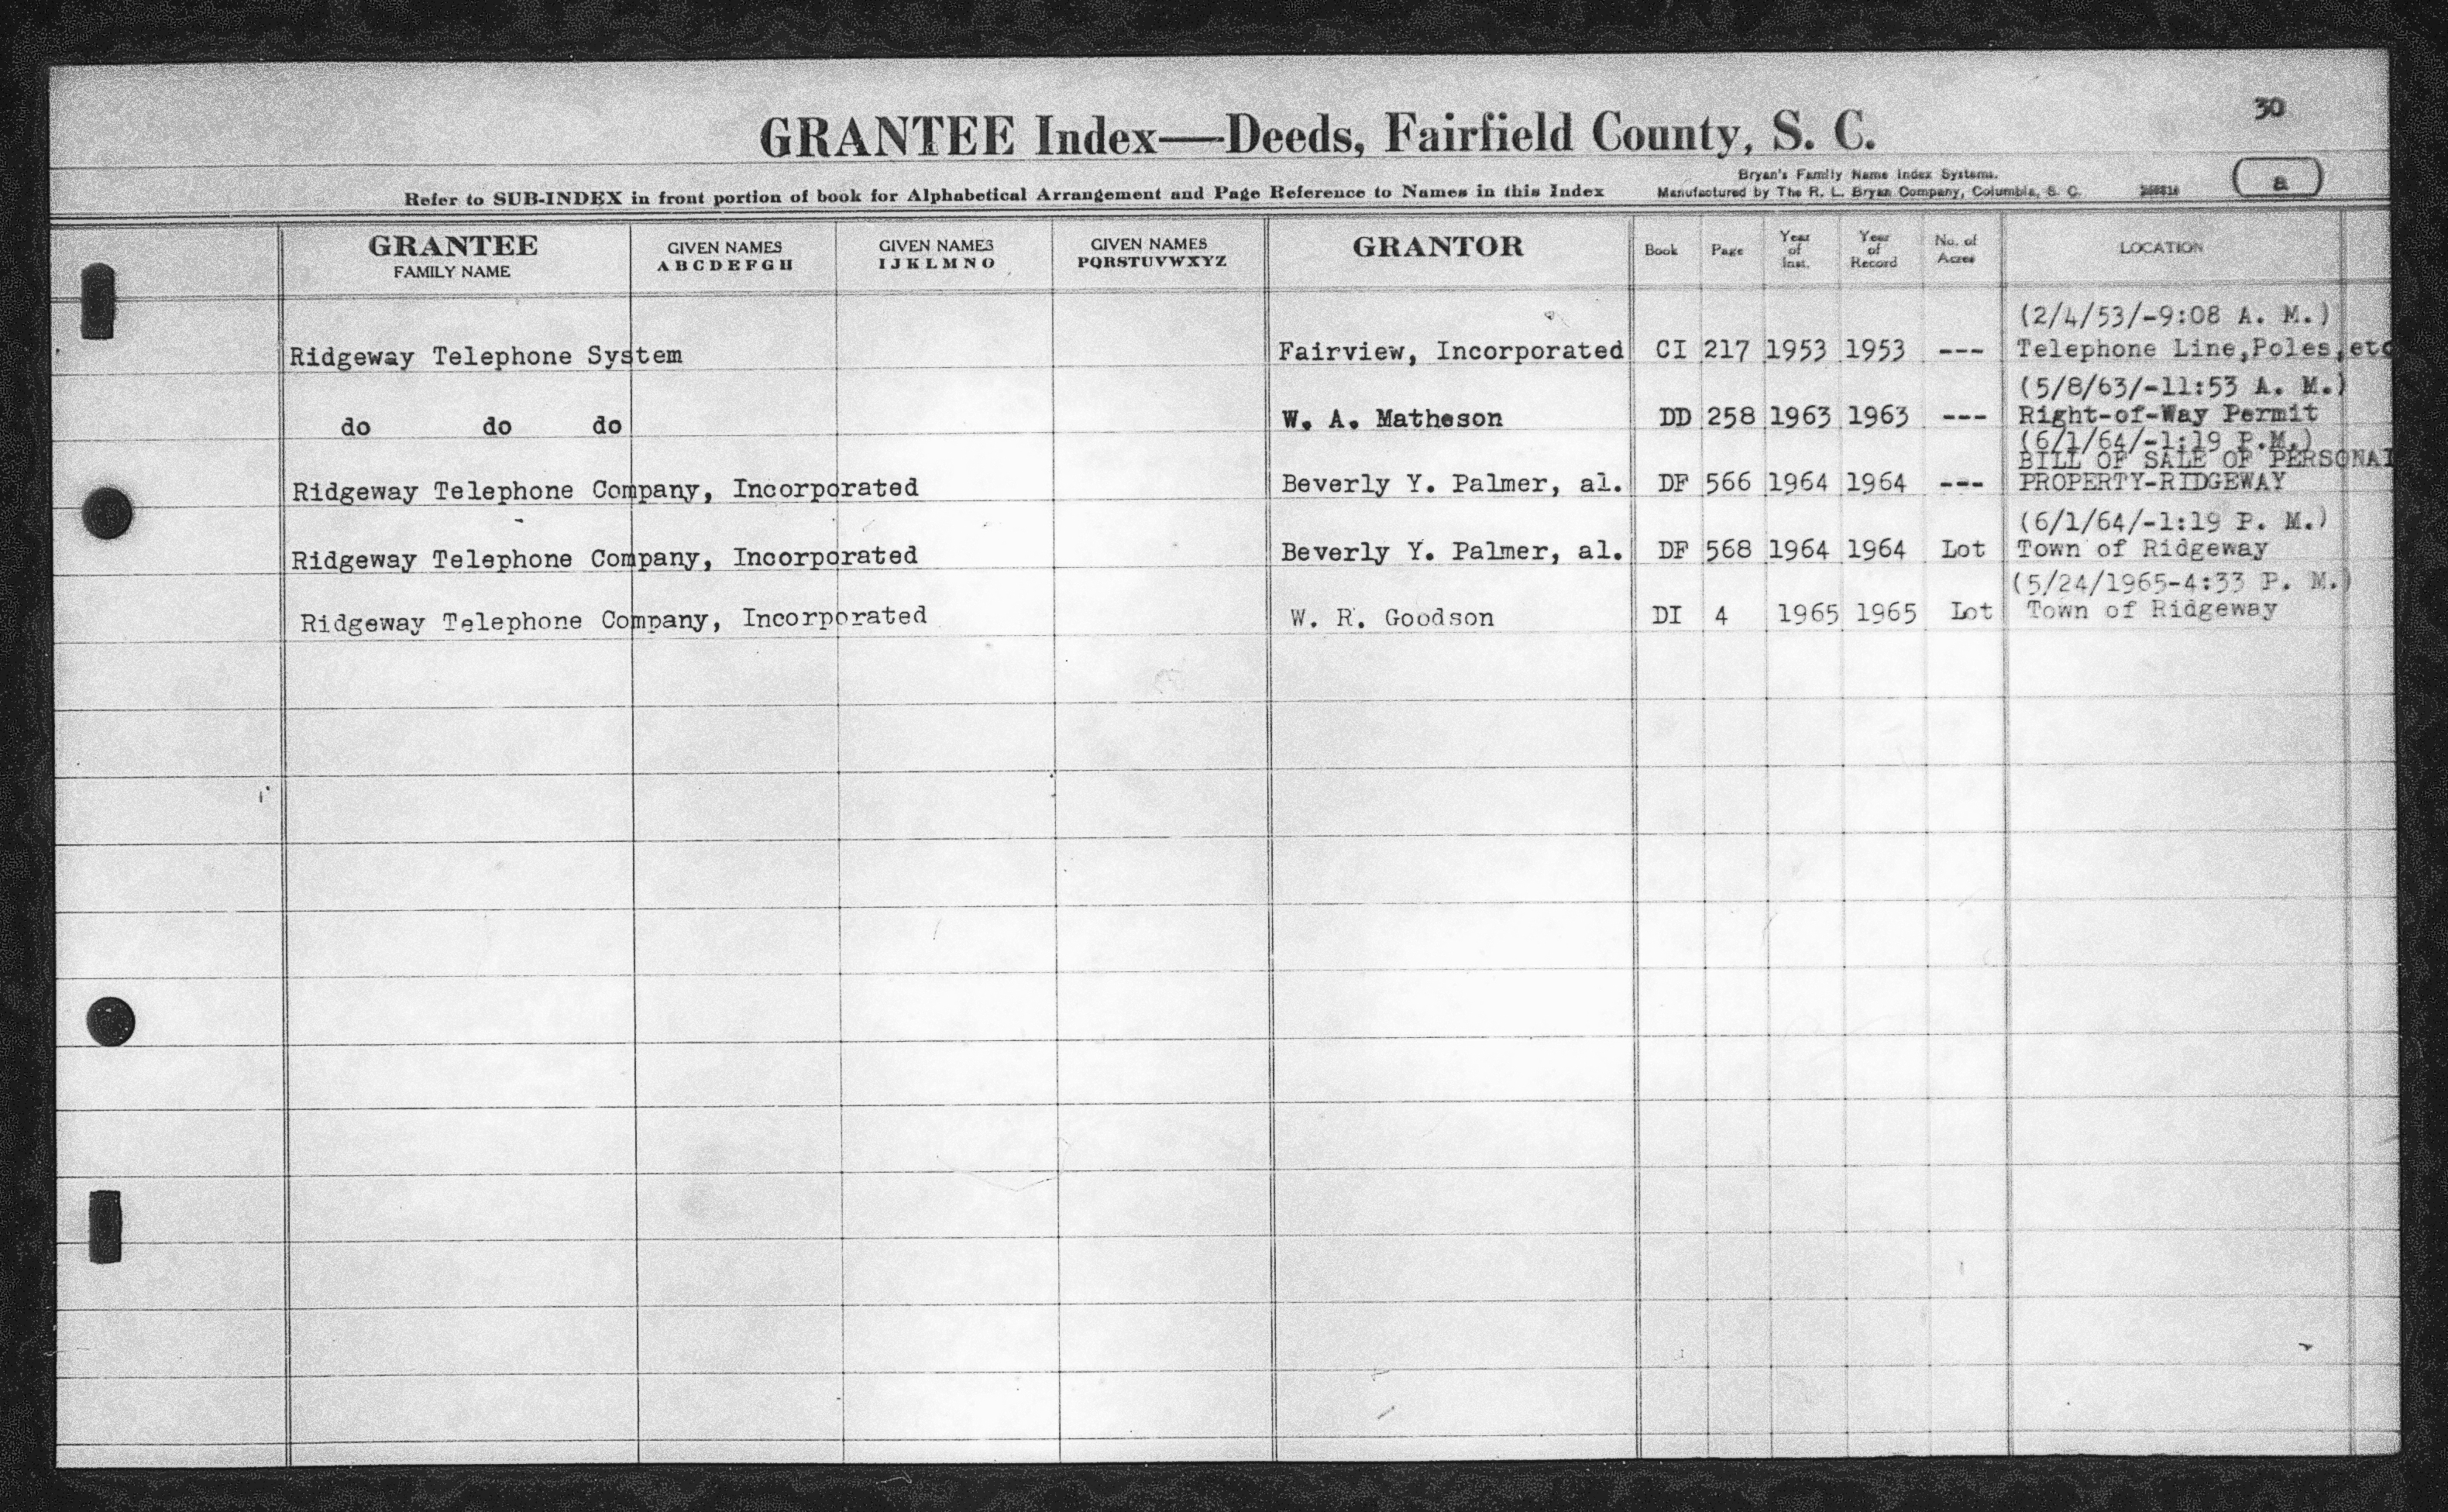 30
GRANTEE Index—Deeds, Fairfield County, S. C.
Bryan's Family Name Index Systems.
Refer to SUB-INDEX in front portion of book for Alphabetical Arrangement and Page Reference to Names in this Index Manufactured by The R. L. Bryan Company, Columbia, S. C.
a
GRANTEE FAMILY NAME GIVEN NAMES ABCDEFGH GIVEN NAMES IJKLMNO GIVEN NAMES PQRSTUVWXYZ GRANTOR Book Page Year of Inst. Year of Record No. of Acres LOCATION
(2/4/53/-9:08 A. M.)
Ridgeway Telephone System Fairview, Incorporated CI 217 1953 1953 --- Telephone Line,Poles,etc
(5/8/63/-11:53 A. M.)
do do do W. A. Matheson DD 258 1963 1963 --- Right-of-Way Permit
(6/1/64/-1:19 P.M.)
BILL OF SALE OF PERSONAL
Ridgeway Telephone Company, Incorporated Beverly Y. Palmer, al. DF 566 1964 1964 --- PROPERTY-RIDGEWAY
(6/1/64/-1:19 P. M.)
Ridgeway Telephone Company, Incorporated Beverly Y. Palmer, al. DF 568 1964 1964 Lot Town of Ridgeway
(5/24/1965-4:33 P. M.)
Ridgeway Telephone Company, Incorporated W. R. Goodson DI 4 1965 1965 Lot Town of Ridgeway